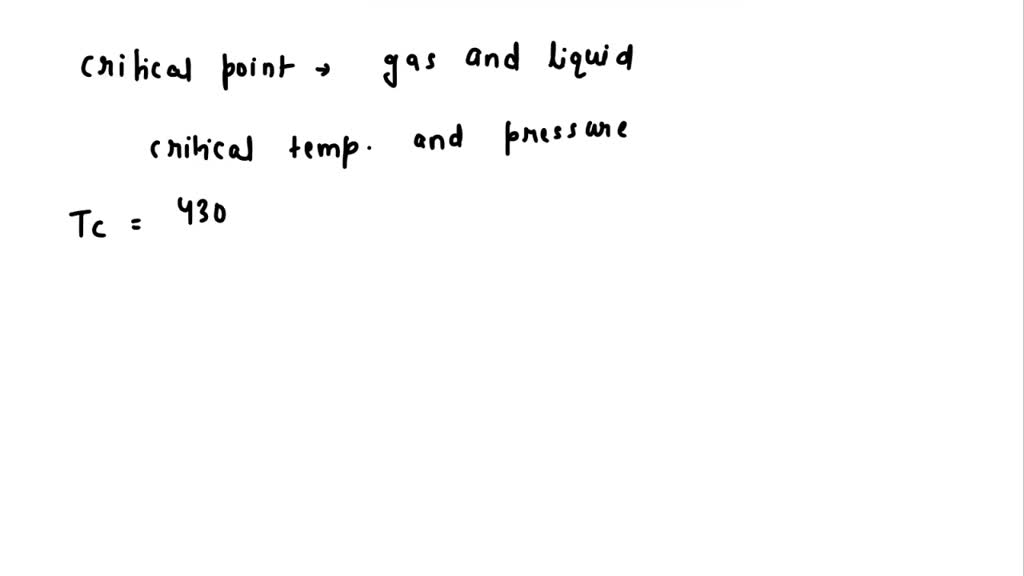 critical point → gas and liquid
critical temp. and pressure
Tc = 430